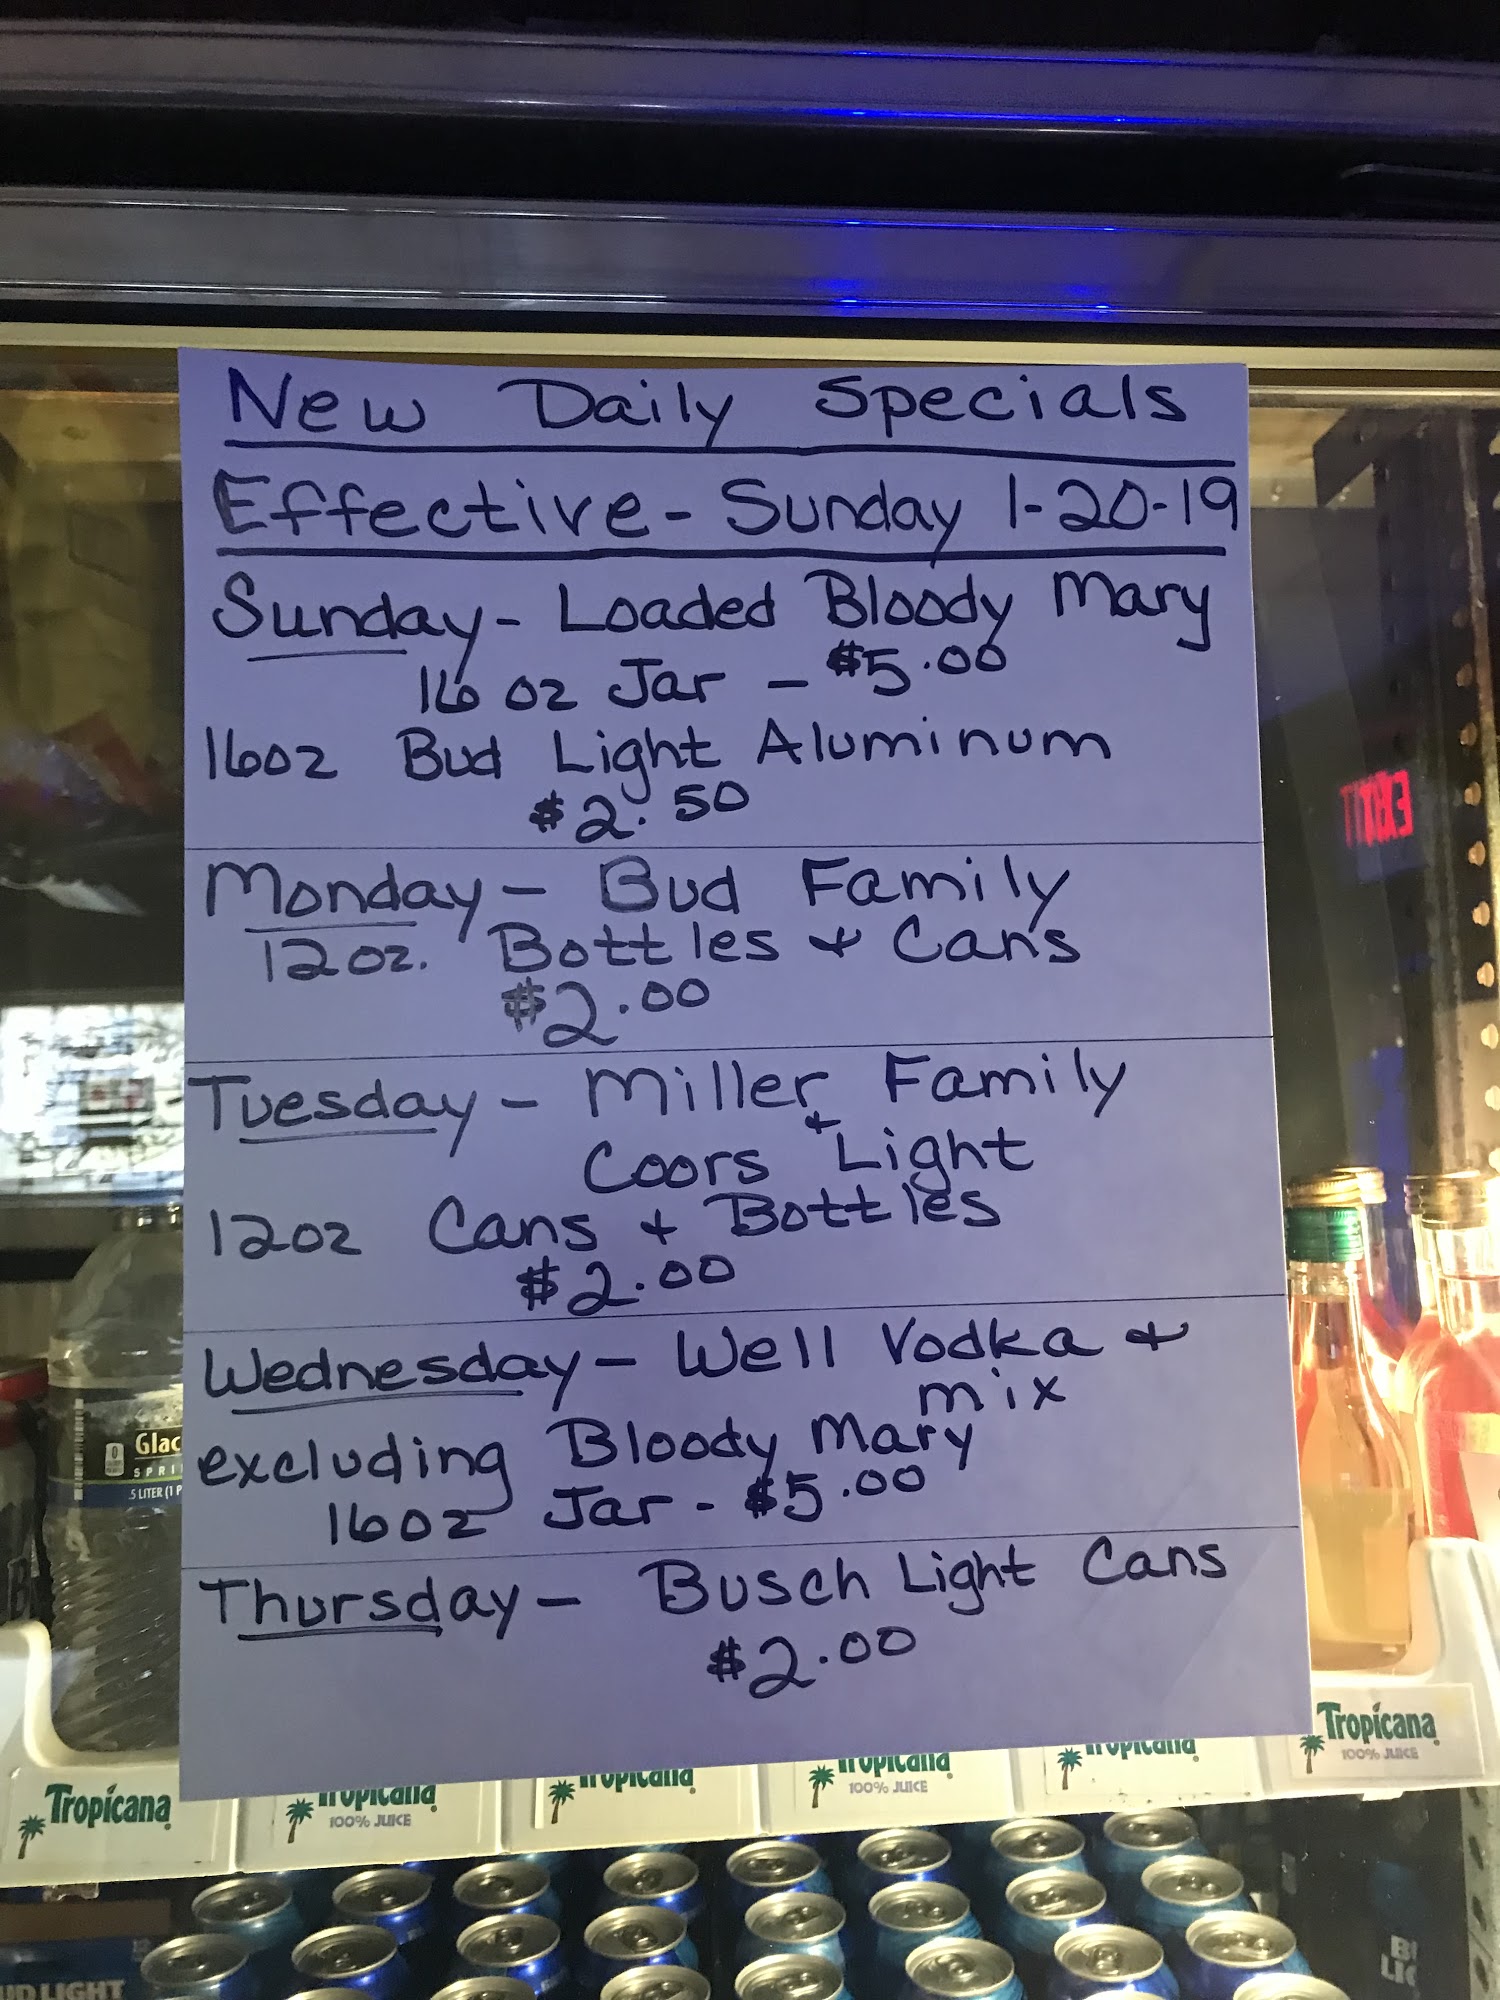 New Daily Specials
Effective - Sunday 1-20-19
Sunday - Loaded Bloody Mary
16 oz Jar - $5.00
16oz Bud Light Aluminum
$2.50
Monday - Bud Family
12oz. Bottles & Cans
$2.00
Tuesday - Miller Family
& Coors Light
12oz Cans & Bottles
$2.00
Wednesday - Well Vodka &
mix
excluding Bloody Mary
16oz Jar - $5.00
Thursday - Busch Light Cans
$2.00
EXIT
Glac
SPRI
.5 LITER (1 P
Tropicana
100% JUICE
Tropicana
Tropicana
100% JUICE
Tropicana
Tropicana
100% JUICE
Tropicana
UD LIGHT